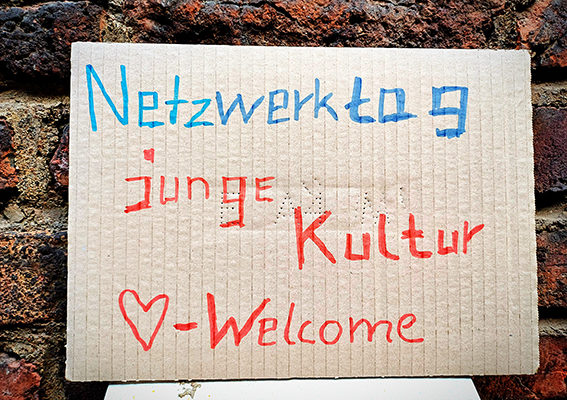 Netzwerktag
junge
Kultur
♡-Welcome